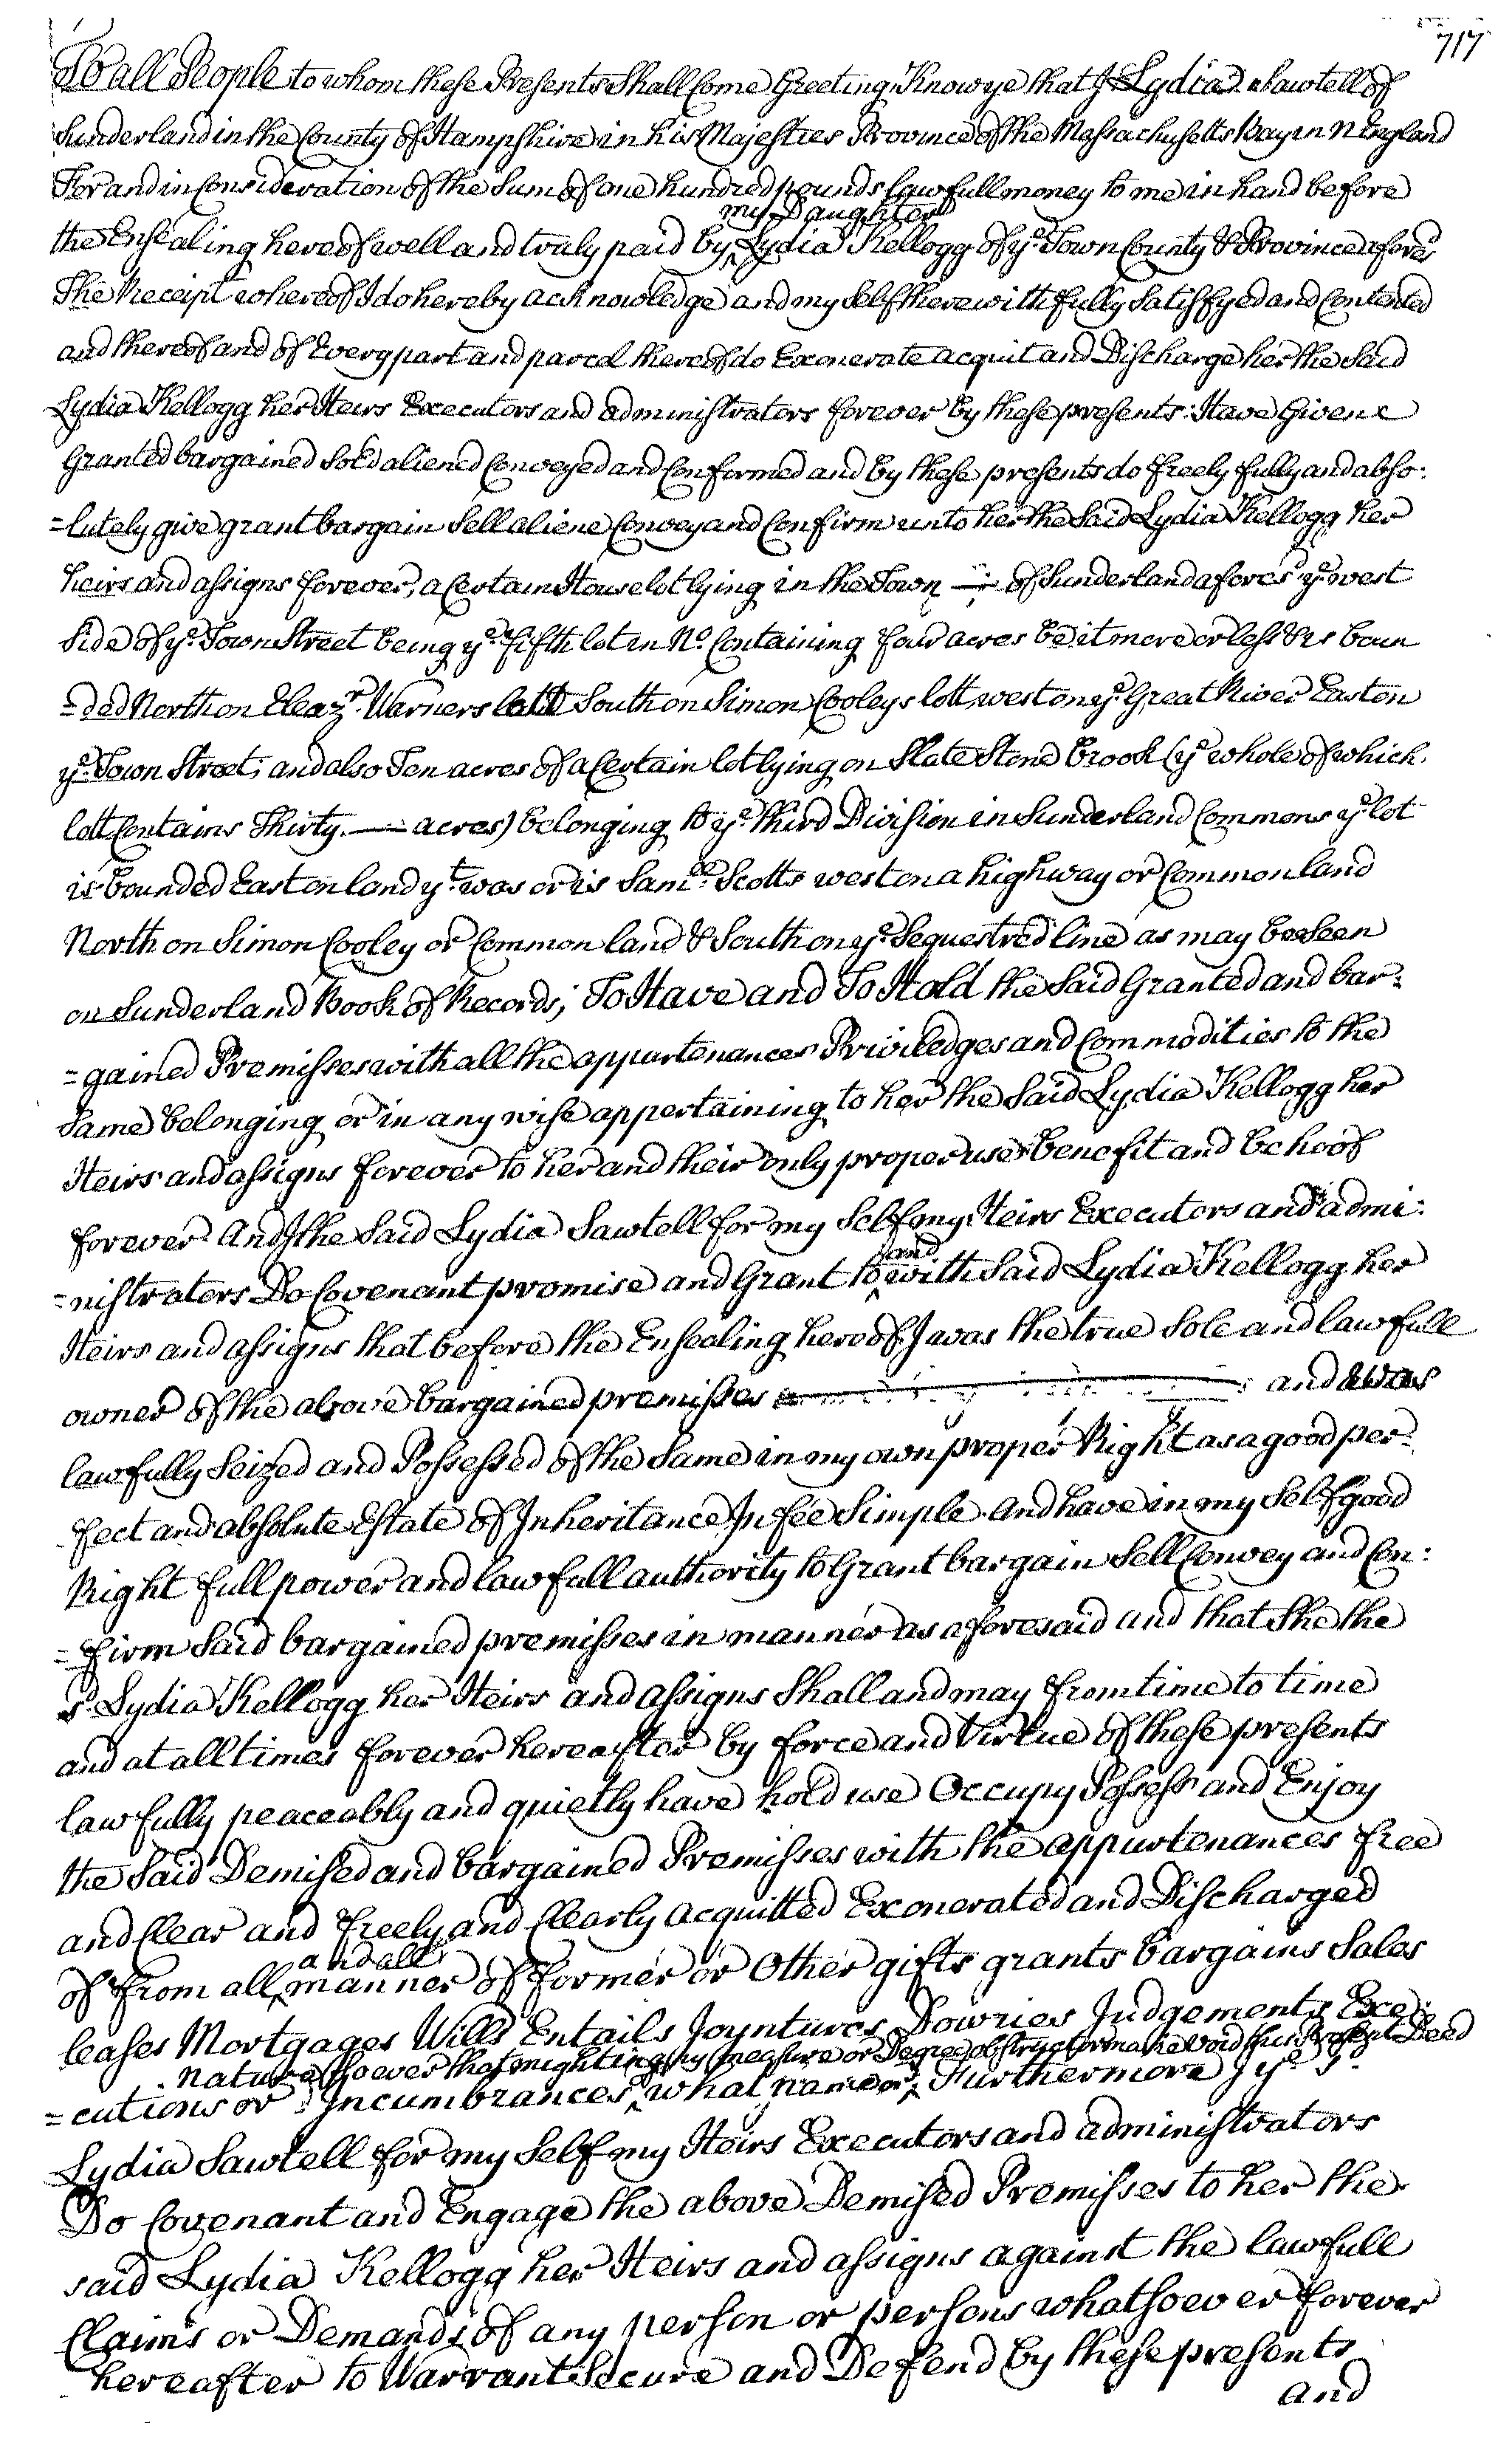 717
To all People to whom these Presents Shall Come Greeting Know ye that I Lydia Sawtell of
Sunderland in the County of Hampshire in his Majesties Province of the Massachusetts Bay in N England
For and in Consideration of the Sum of one hundred pounds Lawfull money to me in hand before
my Daughter
the Ensealing hereof well and truly paid by ‸ Lydia Kellogg of ye Town County & Province afores.d
The Receipt whereof I do hereby acknowledge and my Self therewith fully Satisfyed and Contented
and thereof and of Every part and parcel thereof do Exonerate acquit and Discharge her the Said
Lydia Kellogg her Heirs Executors and administrators forever by these presents: Have Given
Granted bargained Sold aliened Conveyed and Confirmed and by these presents do freely fully and abso:
=lutely give grant bargain Sell aliene Convey and Confirm unto her the Said Lydia Kellogg her
heirs and assigns forever, a Certain House lot lying in the Town of Sunderland afores.d ye west
Side of ye Town Street being ye fifth lot in No. Containing four acres be it more or less & is boun
=ded North on Eleazr. Warners lott South on Simon Cooleys lott, west on ye Great River East on
ye Town Street; and also Ten acres of a Certain lot lying on Slate Stone brook (ye whole of which
lott Contains Thirty — acres) belonging to ye third Division in Sunderland Commons ye lot
is bounded East on land yt was or is Samll. Scotts west on a highway or Common land
North on Simon Cooley or Common land & South on ye Sequestred line as may be Seen
on Sunderland Book of Records; To Have and To Hold the Said Granted and bar:
=gained Premisses with all the appurtenances Priviledges and Commodities to the
Same belonging or in any wise appertaining to her the Said Lydia Kellogg her
Heirs and assigns forever to her and their only proper use benefit and behoof
forever And I the Said Lydia Sawtell for my Self my Heirs Executors and admi:
and
=nistrators Do Covenant promise and Grant to ‸ with Said Lydia Kellogg her
Heirs and assigns that before the Ensealing hereof I was the true Sole and lawfull
owner of the above bargained premisses and was
lawfully Seized and Possessed of the Same in my own proper Right as a good per:
fect and absolute Estate of Inheritance In fee Simple. And have in my Self good
Right full power and lawfull authority to Grant bargain Sell Convey and Con:
=firm Said bargained premisses in manner as aforesaid and that She the
sd. Lydia Kellogg her Heirs and assigns Shall and may from time to time
and at all times forever hereafter by force and Virtue of these presents
lawfully peaceably and quietly have hold use Occupy Possess and Enjoy
the Said Demised and bargained Premisses with the appurtenances free
and Clear and freely and Clearly acquitted Exonerated and Discharged
and all
of from all ‸ manner of former or Other gifts grants bargains Sales
leases Mortgages Wills Entails Joyntures Dowries Judgements Exe:
nature soever that might in any measure or Degree obstruct or make void this Present Deed
=cutions or Incumbrances, ‸ what name or ‸ Furthermore I ye sd.
Lydia Sawtell for my Self my Heirs Executors and administrators
Do Covenant and Engage the above Demised Premisses to her the
said Lydia Kellogg her Heirs and assigns against the lawfull
Claims or Demands of any person or persons whatsoever forever
hereafter to Warrant Secure and Defend by these presents
and